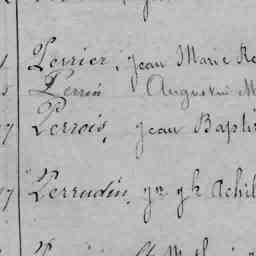 Perrier, Jean Marie
Perrin Augustin M
7 Perrois, Jean Bapti
7 Perrudin, Achil